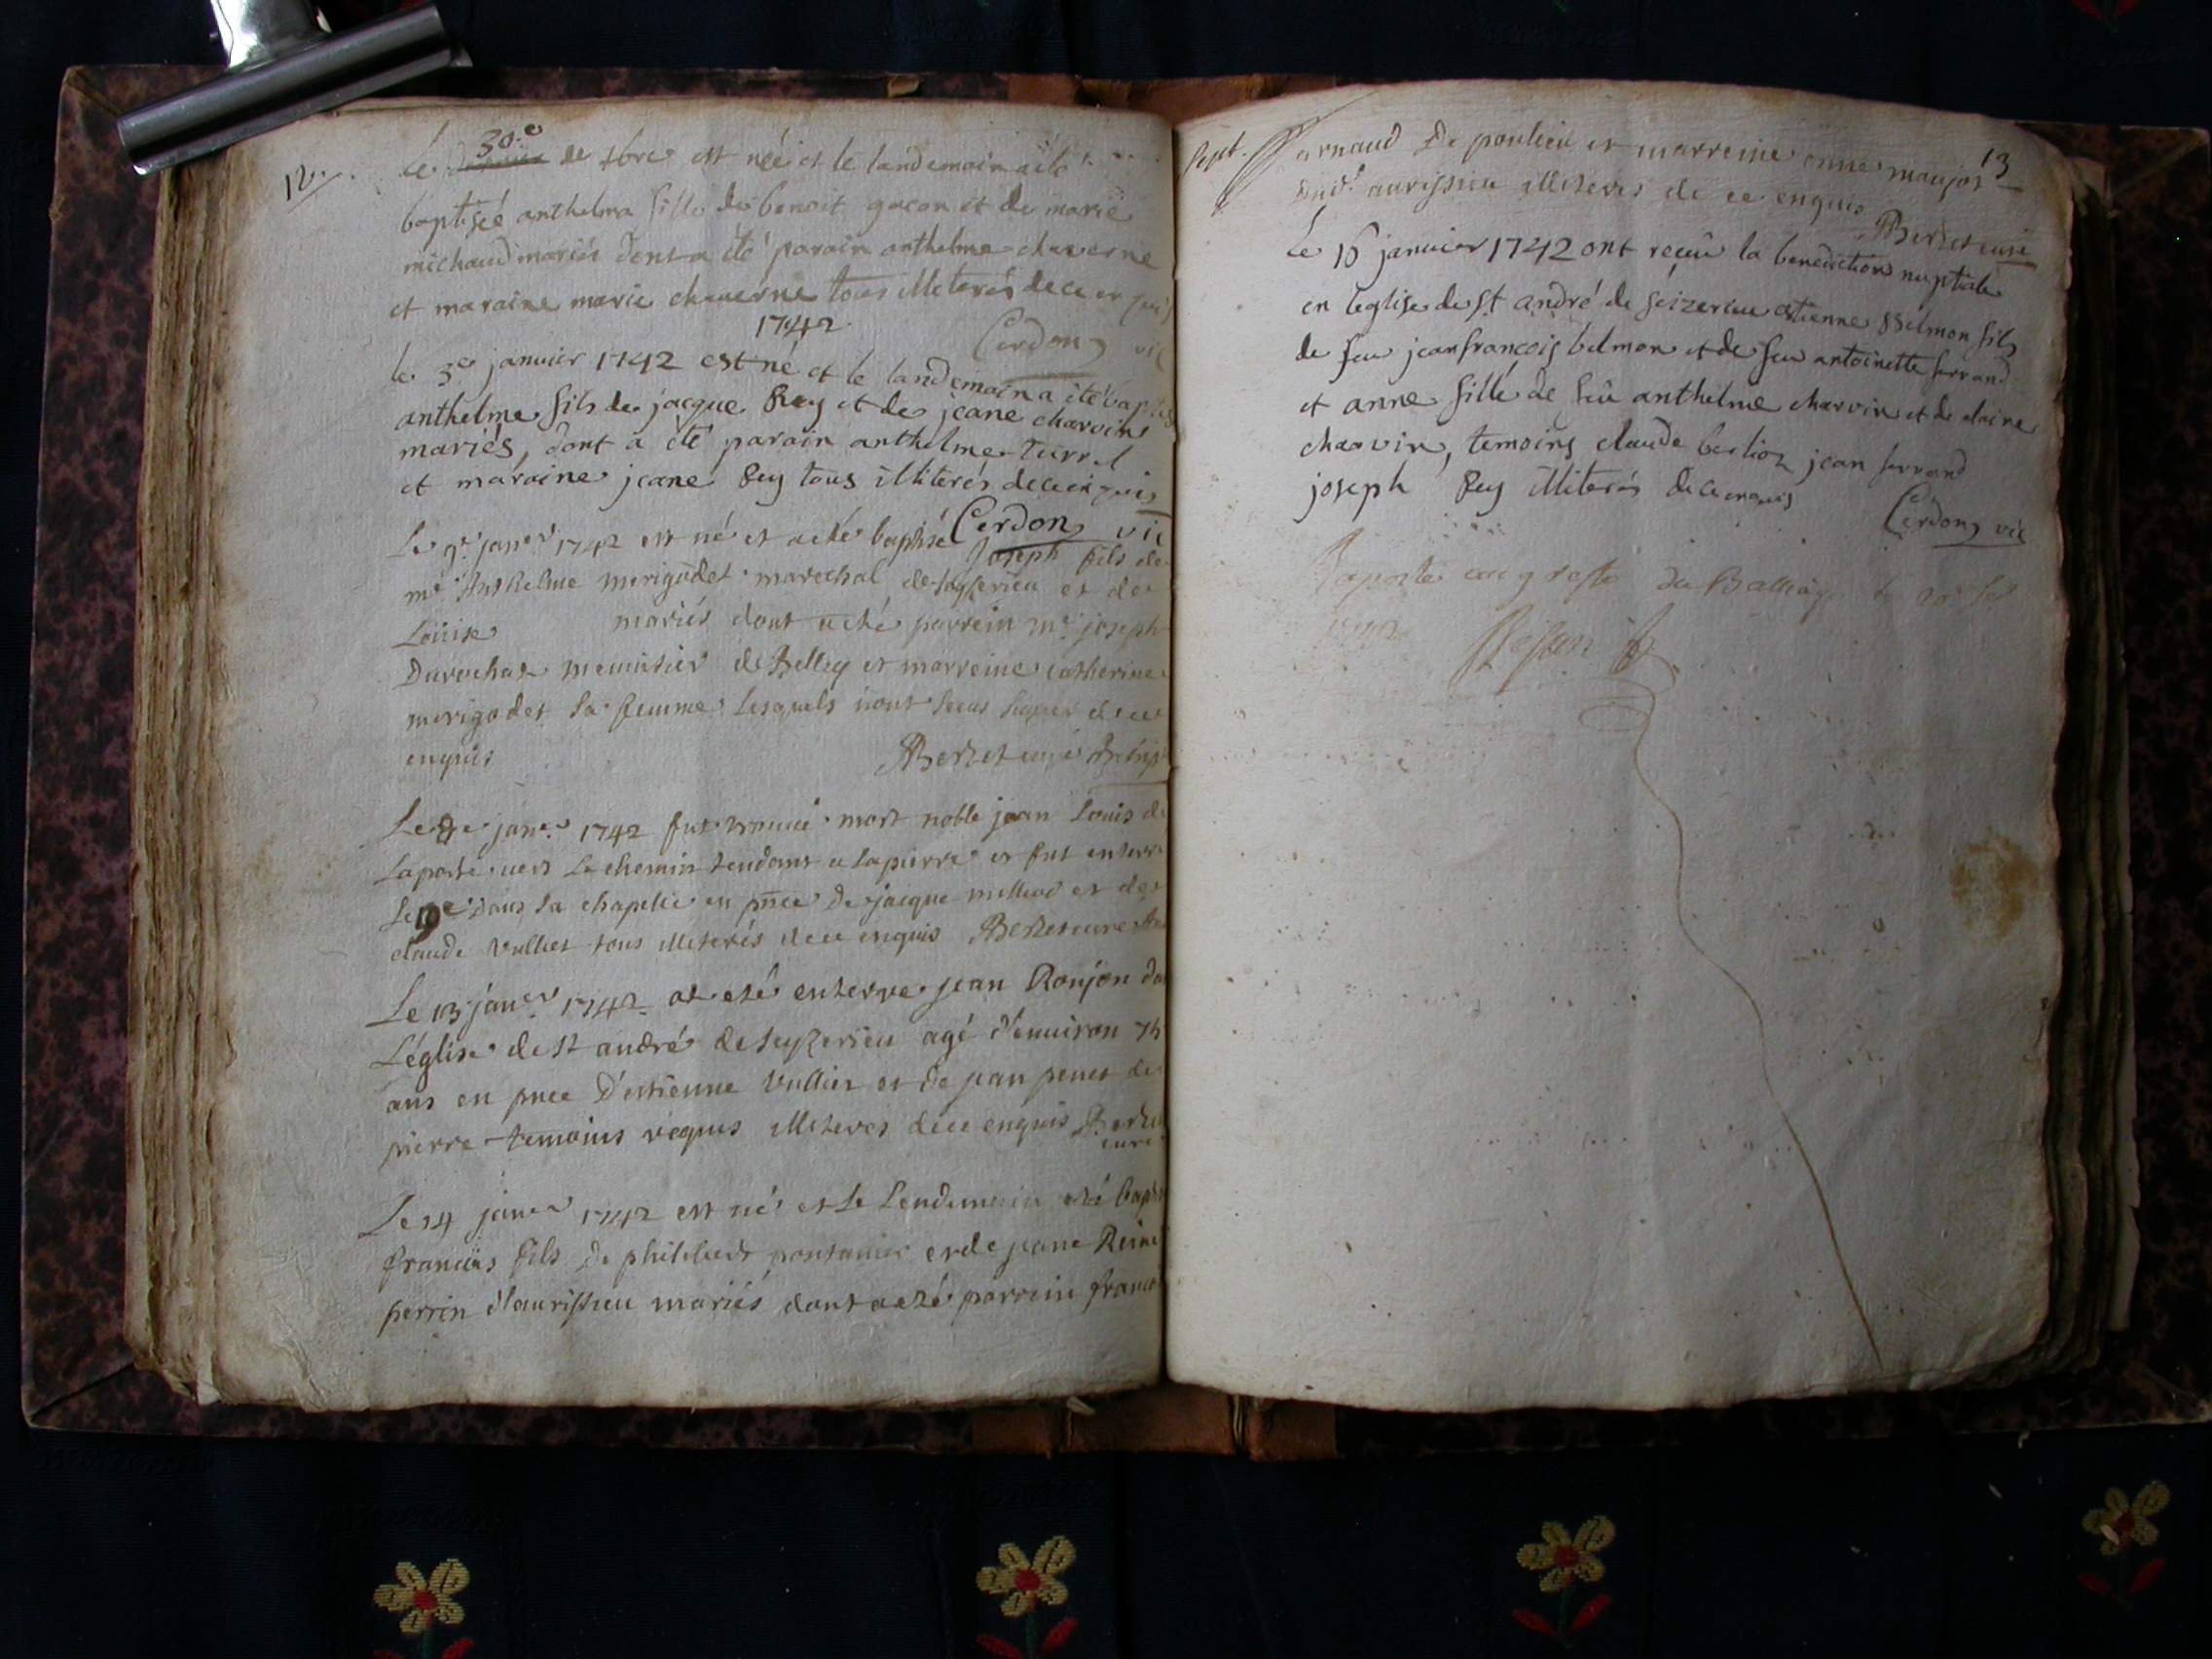 12.
30e
Le de xbre est néé et le landemain a été
baptiséé anthelma fille de benoit gacon et de marie
michaud mariés dont a été parain anthelme chaverne
et maraine marie chaverne tous illiterés de ce enquis
1742.
Cerdon vic
le 3e janvier 1742 est né et le landemain a été baptisé
anthelme fils de jacque Rey et de jeane charvin
mariés, dont a été parain anthelme Turrel
et maraine jeane Rey tous illiterés de ce enquis
Cerdon vic
Le 9e janer 1742 est né et a eté baptisé Joseph fils de
me Anthelme merigodet marechal de seyserieu et de
Louise mariés dont a eté parrein me joseph
Durochat menuisier de Belley et marreine catherine
merigodet sa femme lesquels n'ont sceus signer de ce
enquis
Berlet curé
Le 8e janer 1742 fut trouvé mort noble jean Louis de
Laporte vers Le chemin tendant a Lapierre et fut enterré
Le 9e dans sa chapelle en pnce de jacque milliod et de
claude Vulliet tous illiterés de ce enquis Berlet curé
Le 13 janer 1742 at eté enterré jean Roujon dans
L'église de st andré de seyzerieu agé d'environ 75
ans en pnce d'estienne Vullier et de jean penet de
pierre temoins requis illiterés de ce enquis Berlet
curé
Le 14 janer 1742 est né et Le Lendemain eté baptisé
francois fils de philibert pontanier et de jeane Reine
perrin d'aurissieu mariés dont a eté parrein francois
Sept.
13
arnaud De poulieu et marreine anne maujot
dud. aurissieu illiterés de ce enquis
Berlet curé
Le 16 janvier 1742 ont reçeu la benediction nuptiale
en l'eglise de st andré de seizerieu etienne Belmon fils
de feu jean francois belmon et de feu antoinette ferrand
et anne fille de feû anthelme charvin et de claire
charvin, temoins claude berlioz jean ferrand
joseph Rey illiterés de ce enquis
Cerdon vic
Raporté au greffe du Balliage le 20
1742